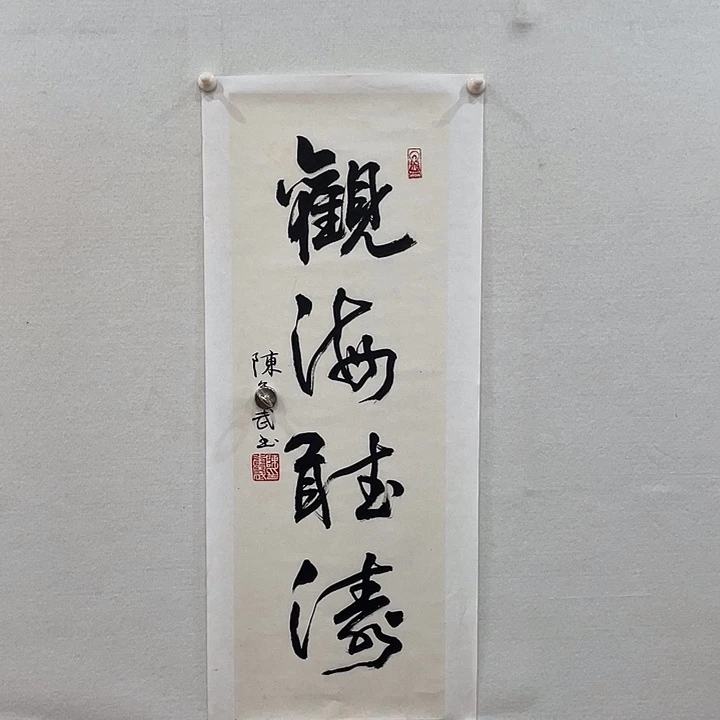 觀海聽濤
陳 武书